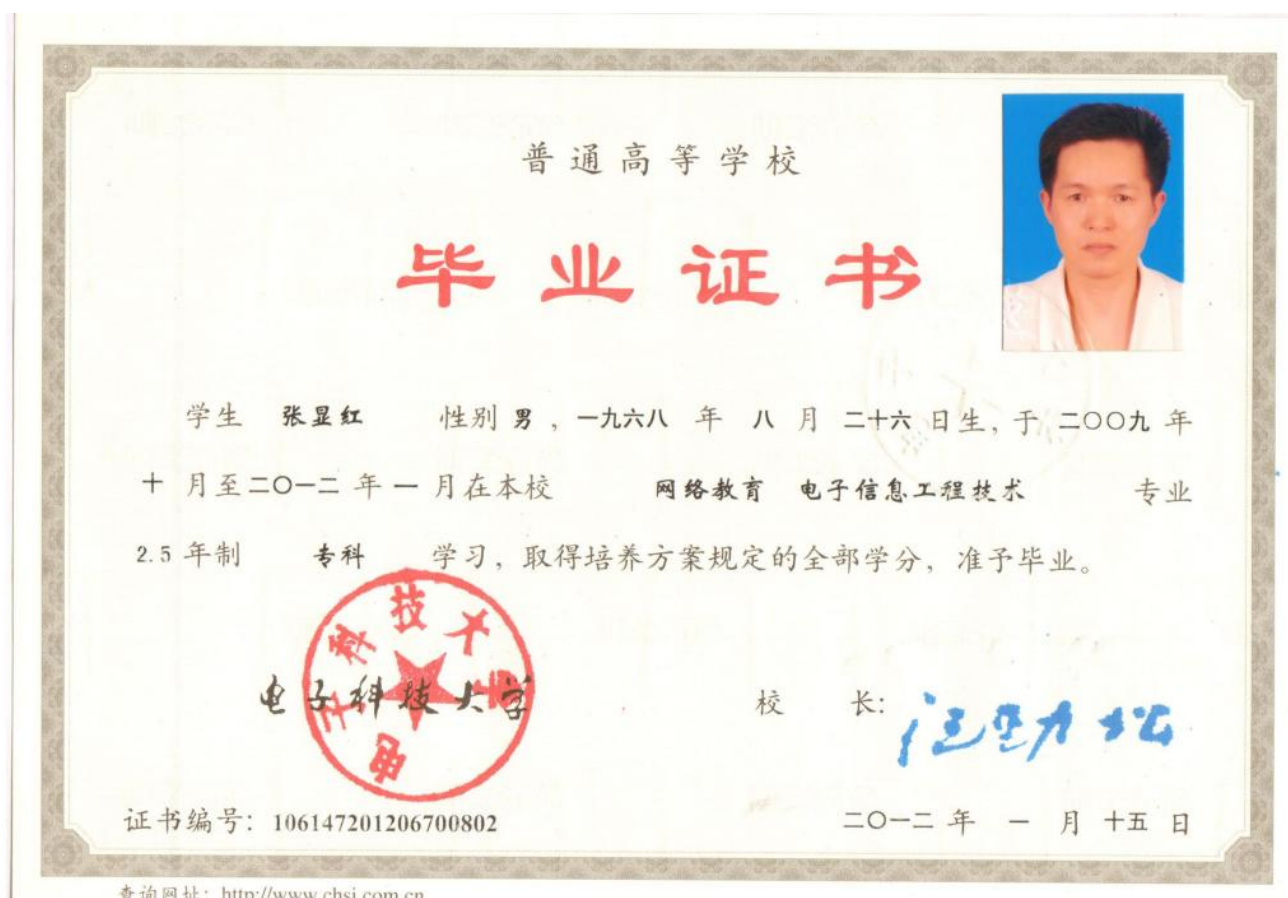 普通高等学校
毕业证书
学生 张显红 性别 男，一九六八 年 八 月 二十六 日生，于 二〇〇九 年
十 月至二〇一二 年 一 月在本校 网络教育 电子信息工程技术 专业
2.5 年制 专科 学习，取得培养方案规定的全部学分，准予毕业。
电子科技大学
电子科技大学
校 长：汪劲松
证书编号：106147201206700802
二〇一二 年 一 月 十五 日
查询网址：http://www.chsi.com.cn